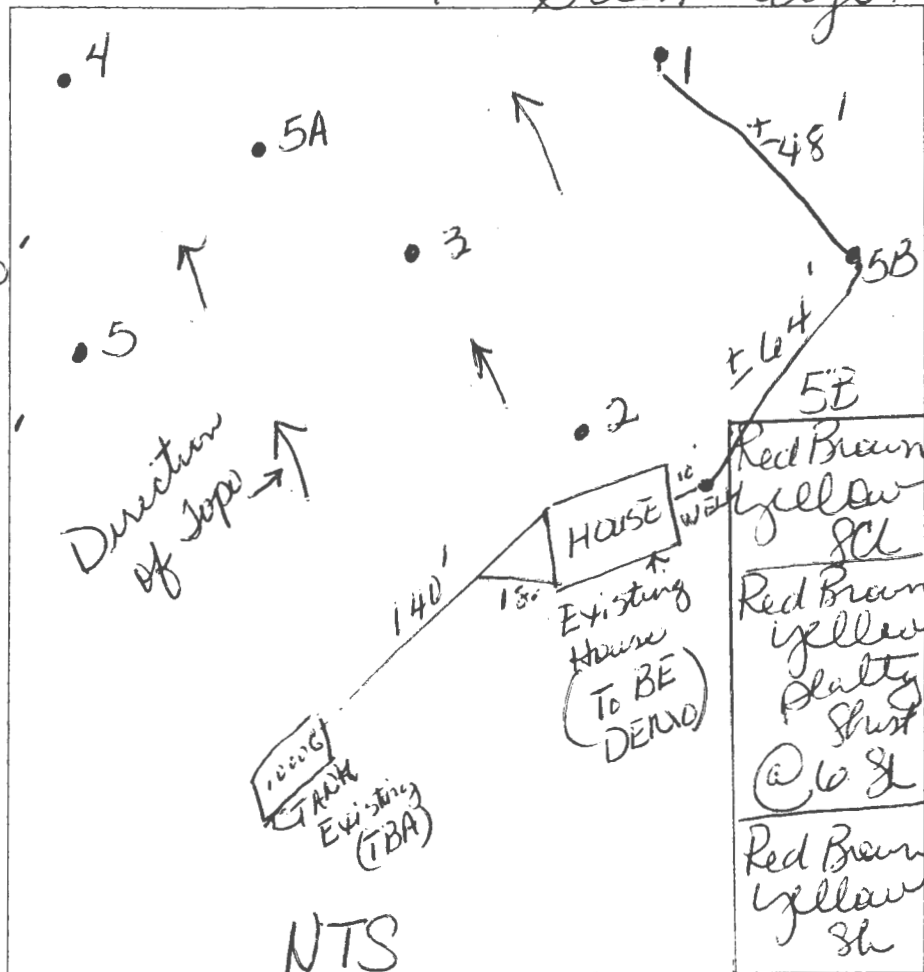 4
5A
1
±48'
3
5B
5
±64'
2
Direction
of Topo
HOUSE
10'
WELL
140'
180
Existing
House
(TO BE
DEMO)
1000G
TANK
Existing
(TBA)
NTS
5B
Red Brown
yellow
SCL
Red Brown
yellow
platty
Shist
@ 6 SL
Red Brown
yellow
SL